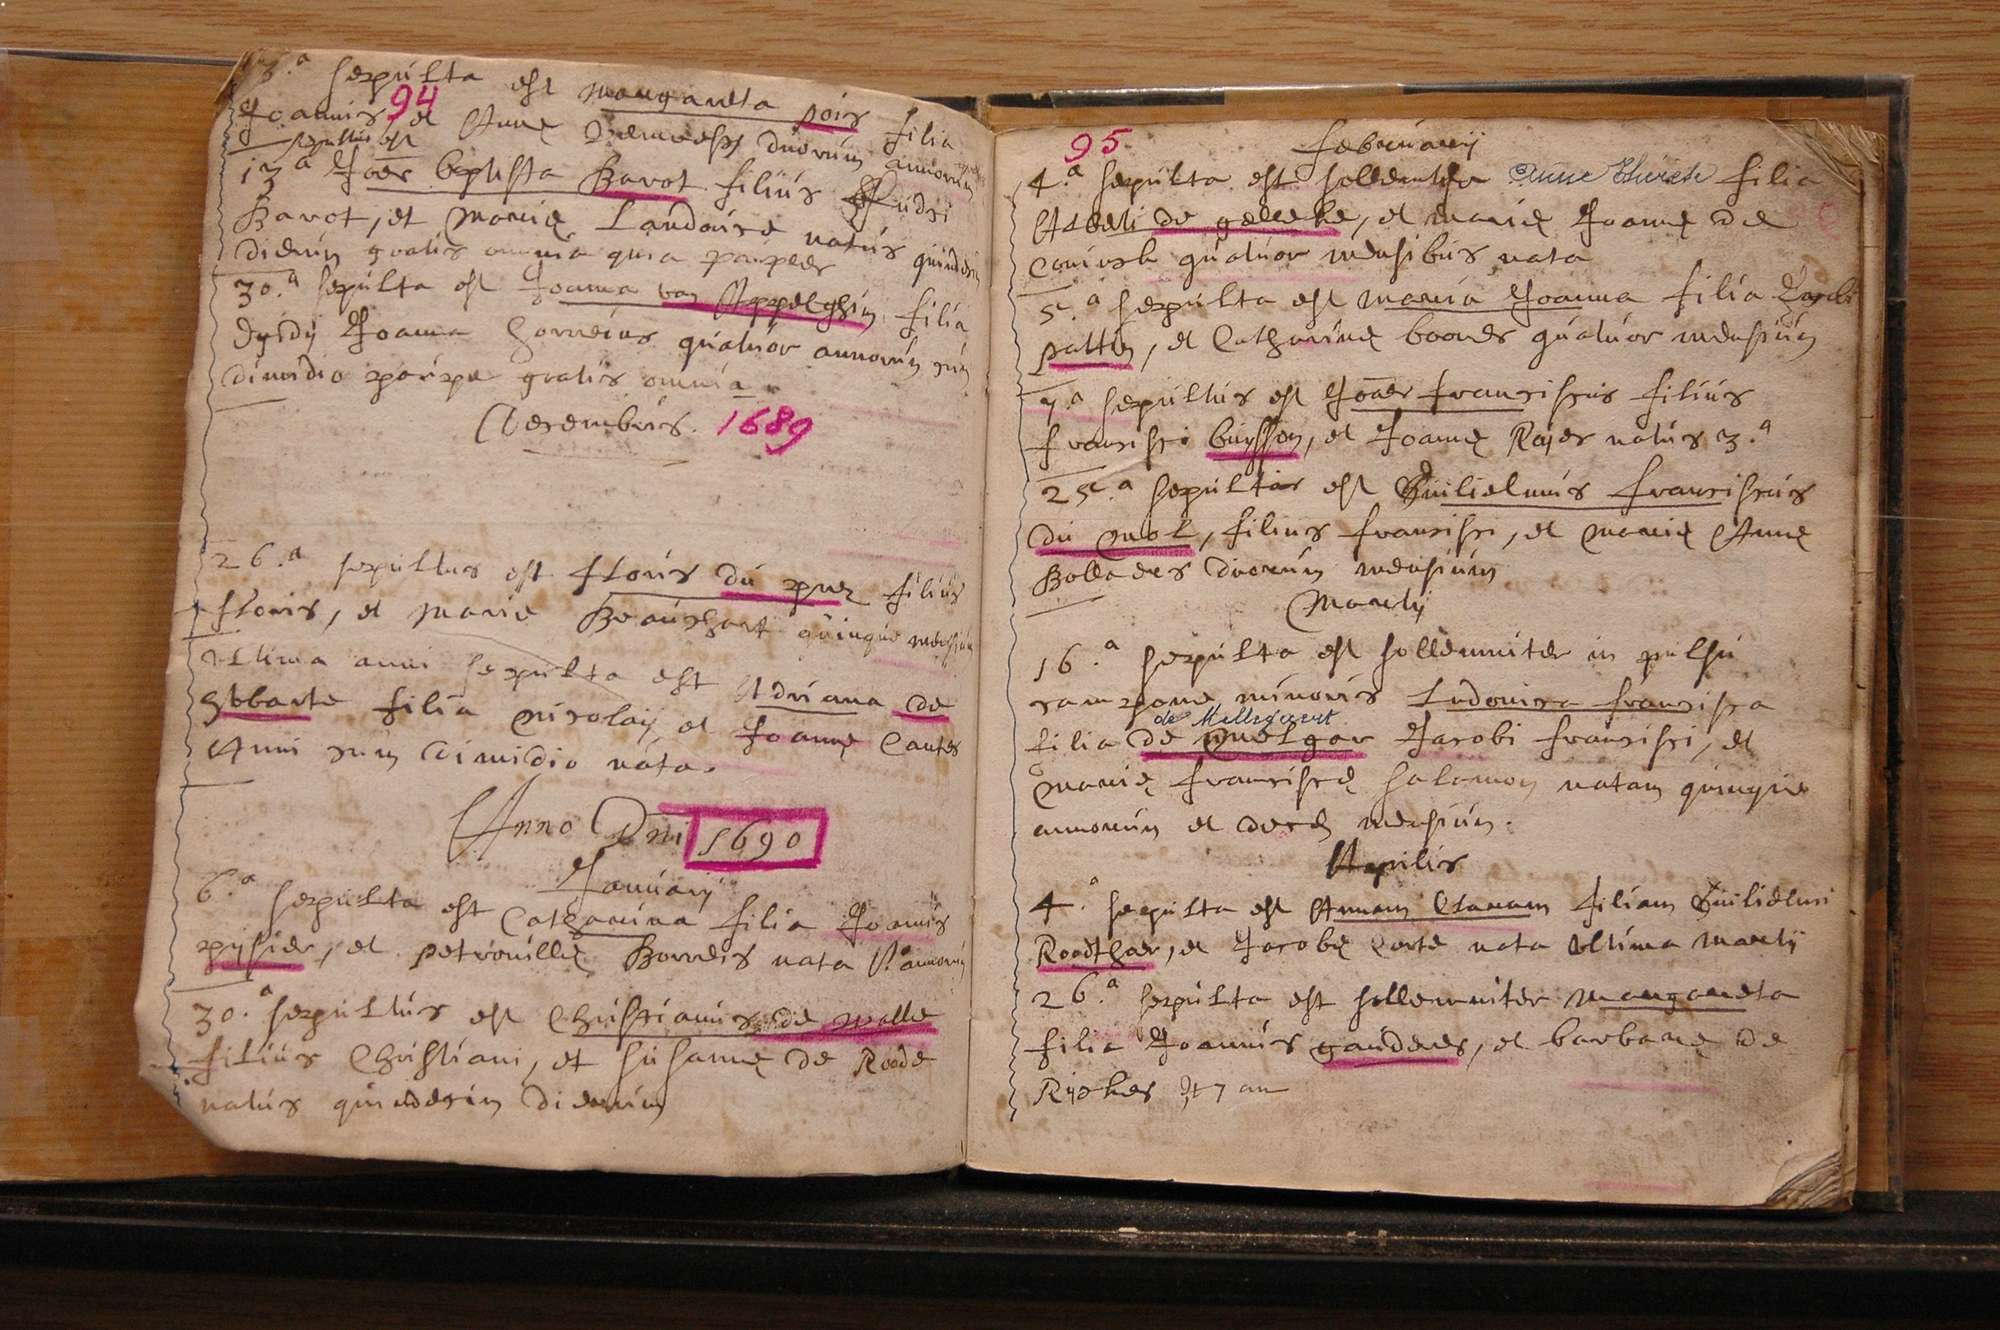 94
sepulta est margareta pois filia
Joannis et Anne duorum annorum
sepultus est
13.a Joes baptista Bavot filius
Bavot, et Marie Landoise natus quindecim
dierum gratis omnia quia pauper
30.a sepulta est Joanna van Appelghem filia
Joanna quatuor annorum cum
dimidio paupe gratis omnia
Decembris. 1689
26.a sepultus est Floris du prez filius
Floris, et Marie Beaushart quinque mensium
Ultima anni sepulta est Adriana de
filia Nicolaij, et Joanne Cantes
Anni cum dimidio nata.
Anno Dni 1690
Januarij
6.a sepulta est Catharina filia Joannis
pijsier, et petronille Borreis nata annorum
30.a sepultus est Christianus de walle
filius Christiani, et susanne de Roode
natus quindecim dierum
95
februarij
4.a sepulta est sollemniter Anne filia
de gelleke, et Marie Joanne de
quatuor mensibus nata
5.a sepulta est Maria Joanna filia
pattin, et Catharine boones quatuor mensium
7.a sepultus est Joes franciscus filius
francisci buijsson, et Joanne Rojes natus 3.a
25.a sepultus est Guilielmus franciscus
du mol, filius francisci, et Marie Anne
duorum mensium
Martij
16.a sepulta est sollemniter in pulsu
campane minoris Ludovica francisca
de
filia de Jacobi francisci, et
Marie francisce salomon natam quinque
annorum et mensium.
Aprilis
4.a sepulta est Annam Claram filiam Guilielmi
Roodthaer, et Jacobe Corte nata Ultima Martij
26.a sepulta est sollemniter margareta
filia Joannis gauderes, et barbare de
Rijckes 7 an